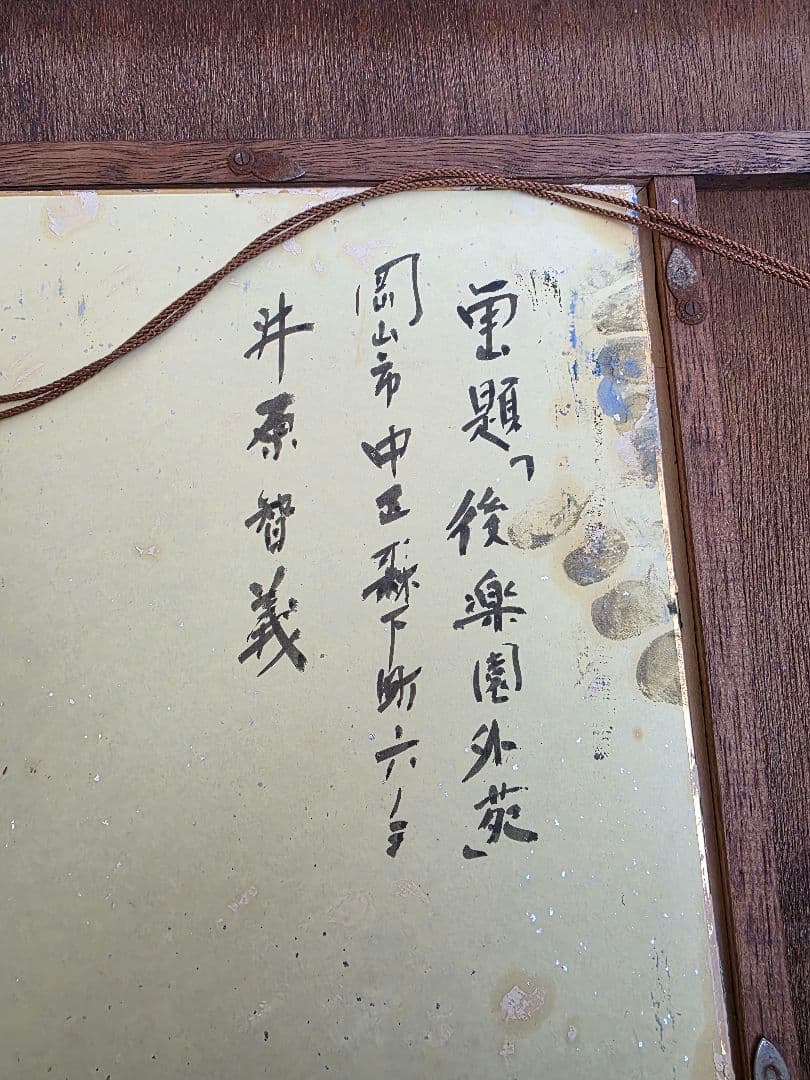 画題「後楽園外苑」
岡山市中区森下町六ノ三
井原智義